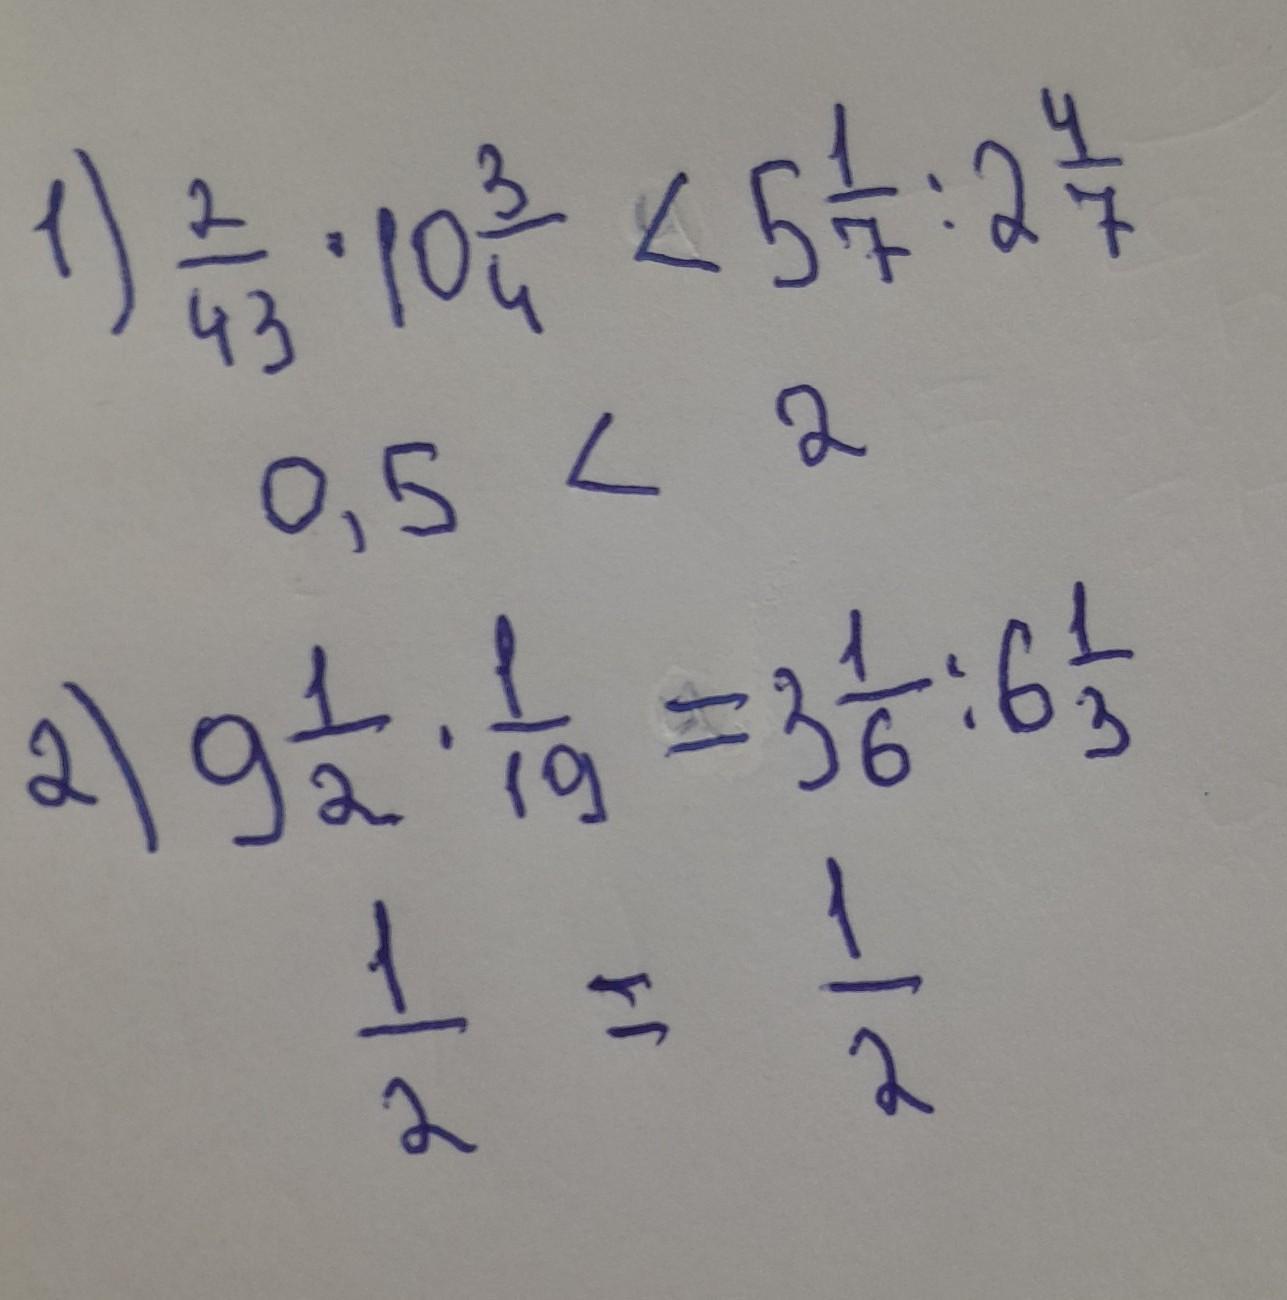 1) 2/43 · 10 3/4 < 5 1/7 : 2 4/7
0,5 < 2
2) 9 1/2 · 1/19 = 3 1/6 : 6 1/3
1/2 = 1/2